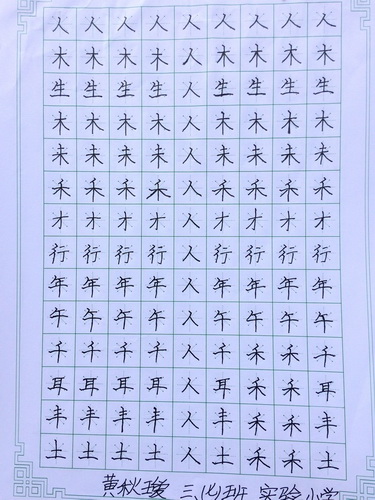 人人人人人人人人人
木木木木人木木木木
生生生生人生生生生
木木木木人木木木木
未未未未人未未未未
禾禾禾禾人禾禾禾禾
才才才才人才才才才
行行行行人行行行行
年年年年人年年年年
午午午午人午午午午
千千千千人千禾禾千
耳耳耳耳人耳禾禾耳
丰丰丰丰人丰禾禾丰
土土土土人土禾禾土
黄秋瑷 三(七)班 实验小学